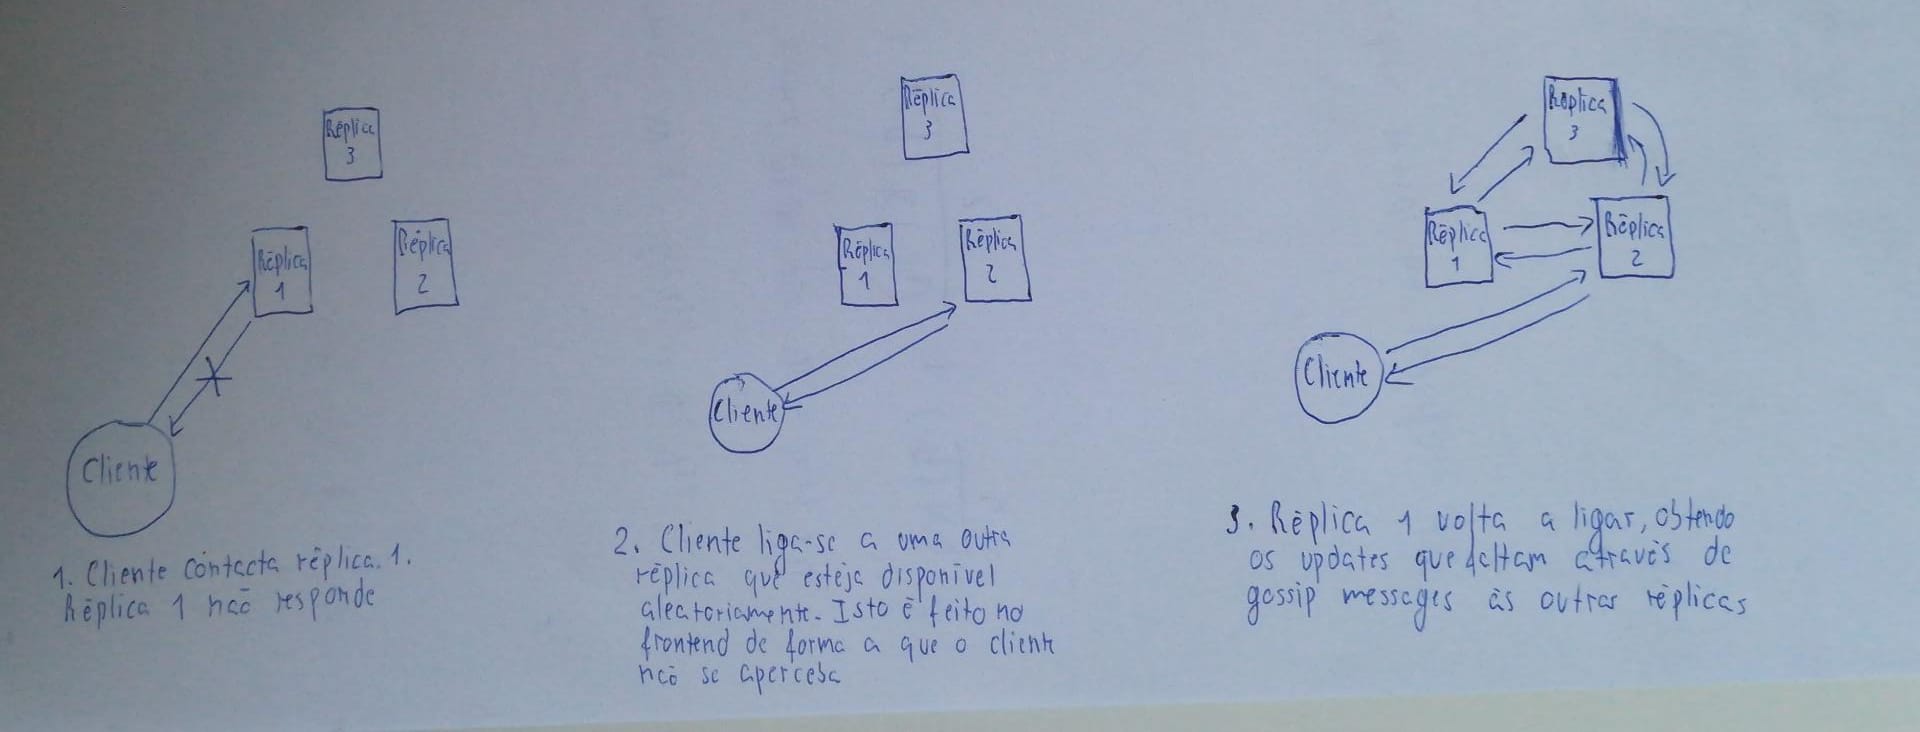 Réplica
3
Réplica
1
Réplica
2
Cliente
1. Cliente contacta réplica 1.
Réplica 1 não responde
Réplica
3
Réplica
1
Réplica
2
Cliente
2. Cliente liga-se a uma outra
réplica que esteja disponível
aleatoriamente. Isto é feito no
frontend de forma a que o cliente
não se aperceba
Réplica
3
Réplica
1
Réplica
2
Cliente
3. Réplica 1 volta a ligar, obtendo
os updates que faltam através de
gossip messages às outras réplicas